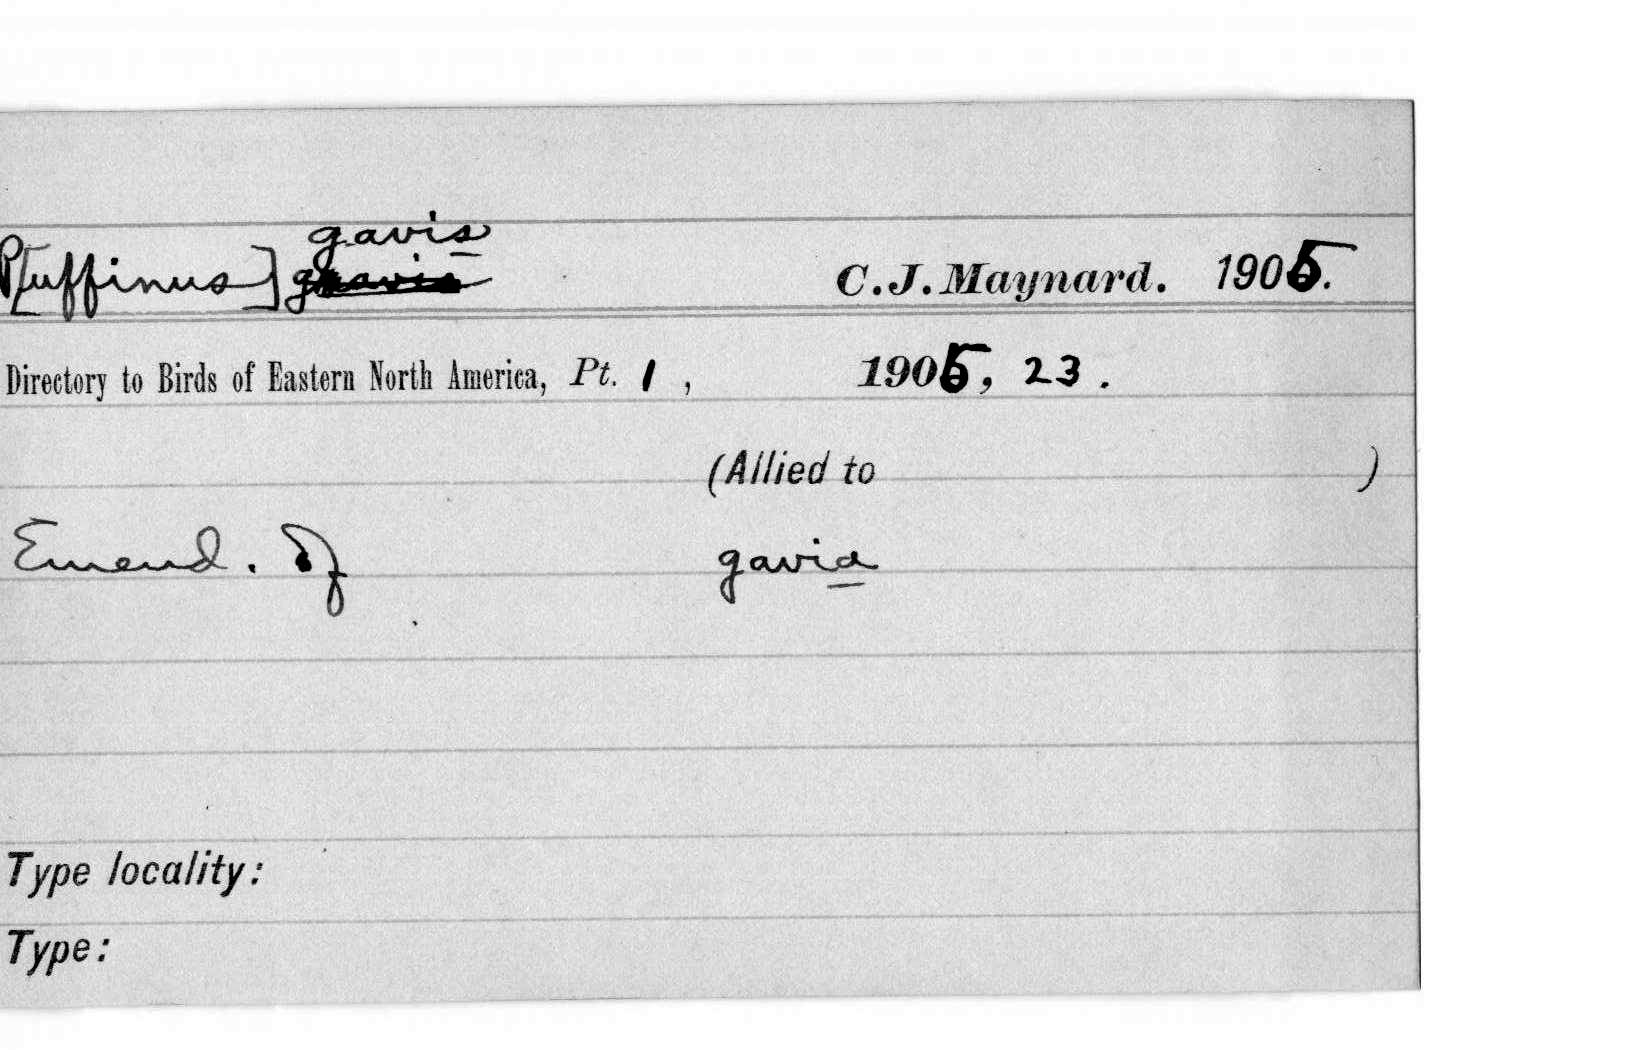 gavis
P[uffinus] gravis C.J. Maynard. 1905.
Directory to Birds of Eastern North America, Pt. 1, 1905, 23.
(Allied to )
Emend. of gavia
Type locality:
Type: